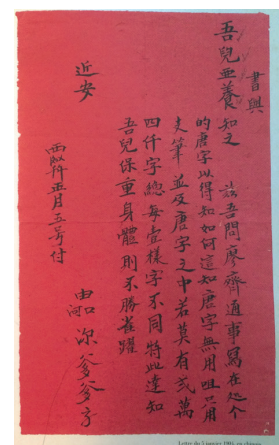 書與
吾兒亜養知之 茲吾問廖齊通事寫在
的唐字以得知如何這知唐字無用咀只用
支筆並及唐字之中若莫有弍萬
四仟字總每壹樣字不同特此達知
吾兒保重身體則不勝雀躍
近安
五月五号付
源爹爹字
Lettre du 5 janvier 1994, en chinois